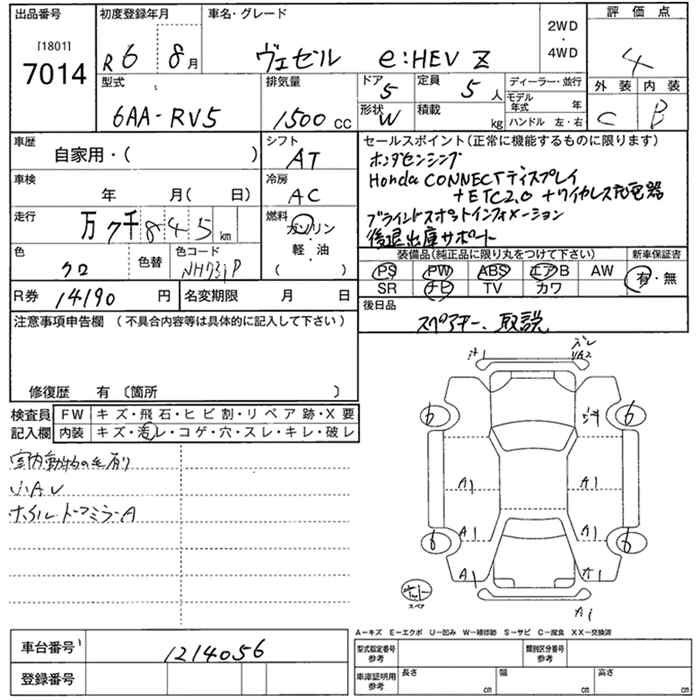 出品番号 初度登録年月 車名・グレード 評価点
[1801]
7014
R6 8月 ヴェゼル e:HEV Z 2WD・4WD 4
型式 排気量 ドア 5 定員 5人 ディーラー・並行 外装 内装
6AA-RV5 1500cc 形状 W 積載 kg モデル年式 年 C B
ハンドル 左・右
車歴 シフト セールスポイント(正常に機能するものに限ります)
自家用・( ) AT ホンダセンシング
車検 冷房 Honda CONNECTディスプレイ
年 月( 日) AC +ETC2.0 +ワイヤレス充電器
走行 燃料 ブラインドスポットインフォメーション
万7千845km ガソリン 後退出庫サポート
軽・油
( )
色 色替 色コード 装備品(純正品に限り丸をつけて下さい) 新車保証書
クロ NH731P PS PW ABS エアB AW 有・無
R券 14190円 名変期限 月 日 SR ナビ TV カワ
注意事項申告欄(不具合内容等は具体的に記入して下さい) 後日品
スペアキー、取説
修復歴 有(箇所 )
検査員 FW キズ・飛石・ヒビ割・リペア跡・X要
記入欄 内装 キズ・汚レ・コゲ・穴・スレ・キレ・破レ
室内動物の毛有り
小AU
ホイルトーフミラーA
A1 A1
A1 A1
A1 A1
6 6
6 6
スペア
A1
A-キズ E-エクボ U-凹み W-補修跡 S-サビ C-腐食 XX-交換済
車台番号 1214056 型式指定番号 参考 類別区分番号 参考
登録番号 車庫証明用 参考 長さ cm 幅 cm 高さ cm